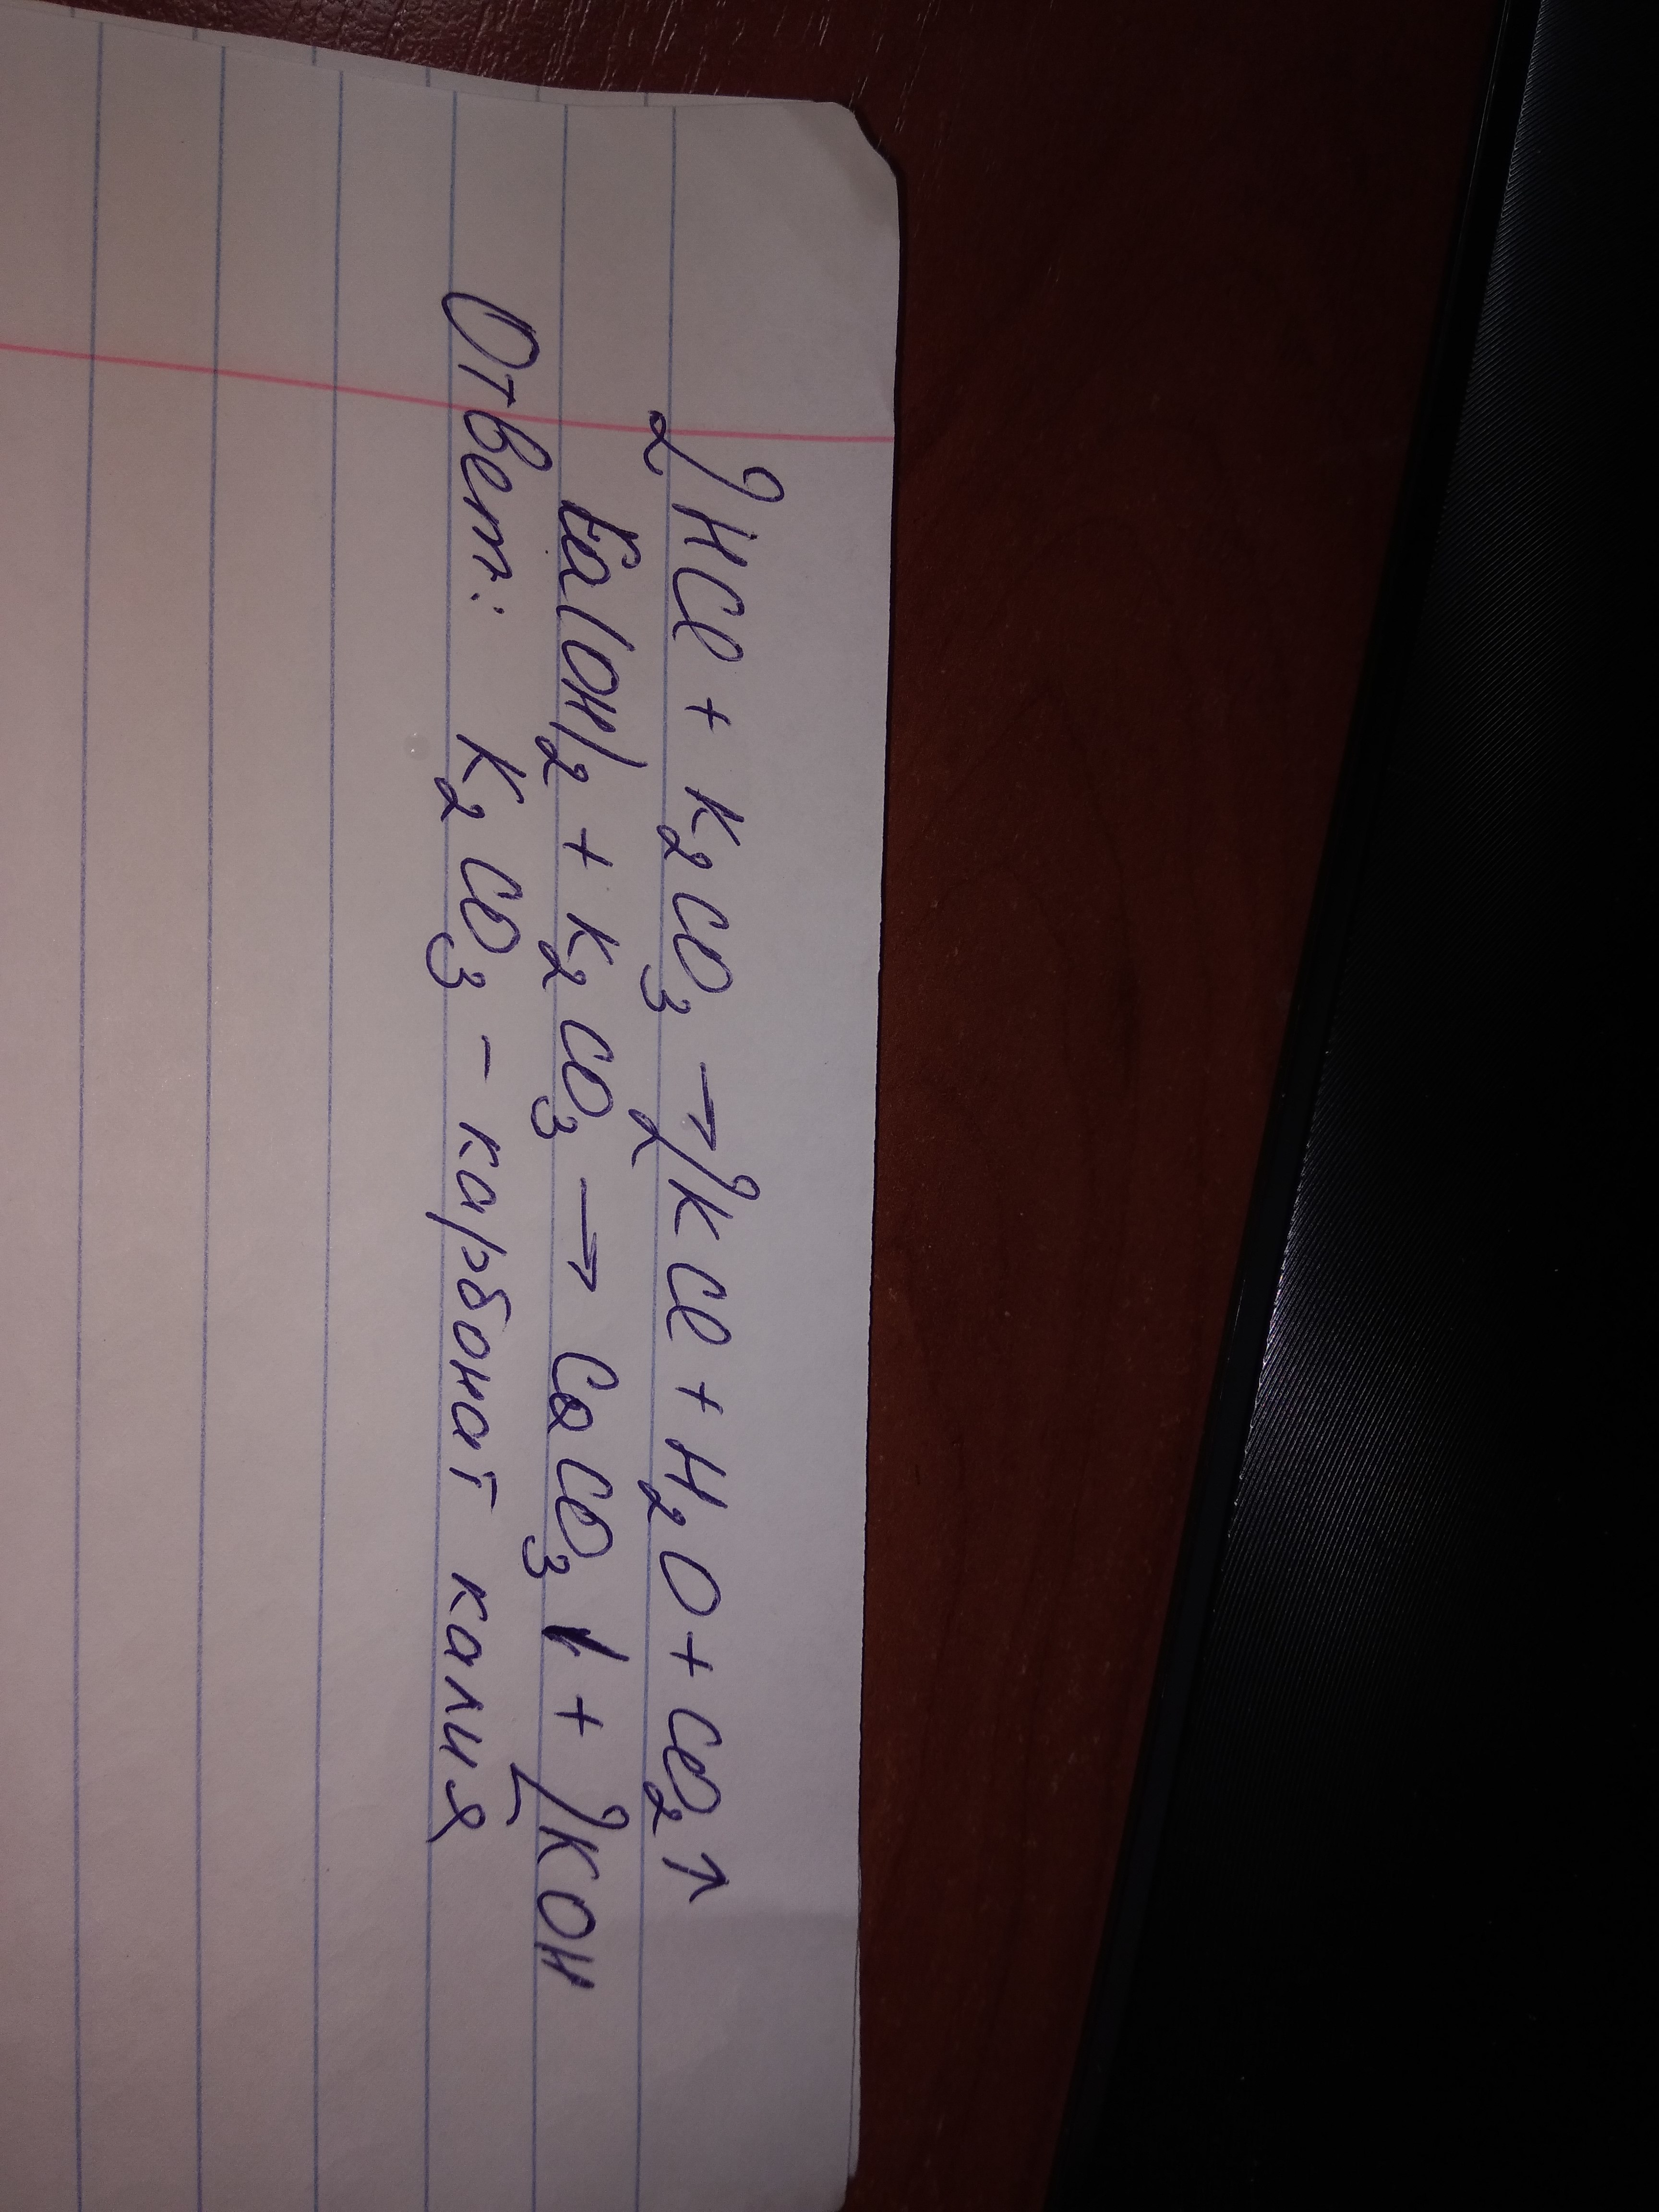 2HCl + K₂CO₃ → 2KCl + H₂O + CO₂↑
Ca(OH)₂ + K₂CO₃ → CaCO₃↓ + 2KOH
Ответ: K₂CO₃ – карбонат калия